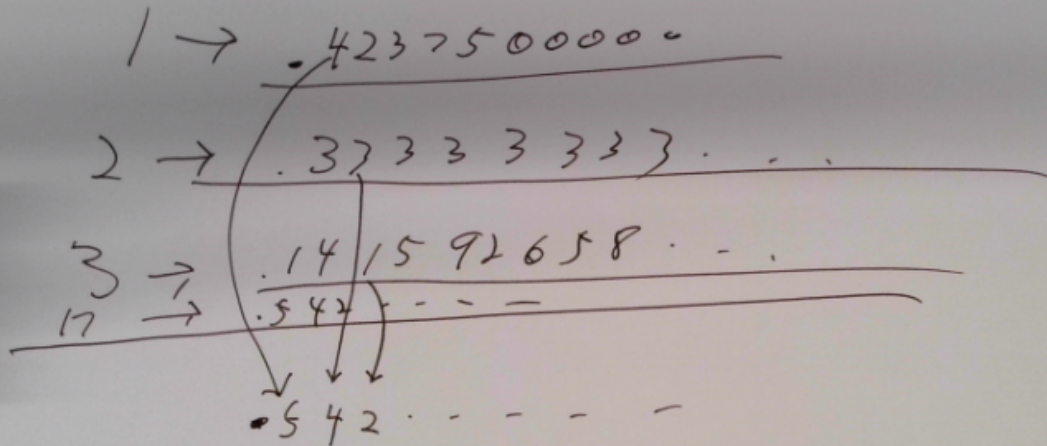 1 → .4237500000
2 → .33333333...
3 → .141592658...
n → .542----
.542-----